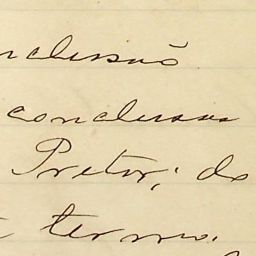 nclusão
conclusos
Pretor; do
termo.